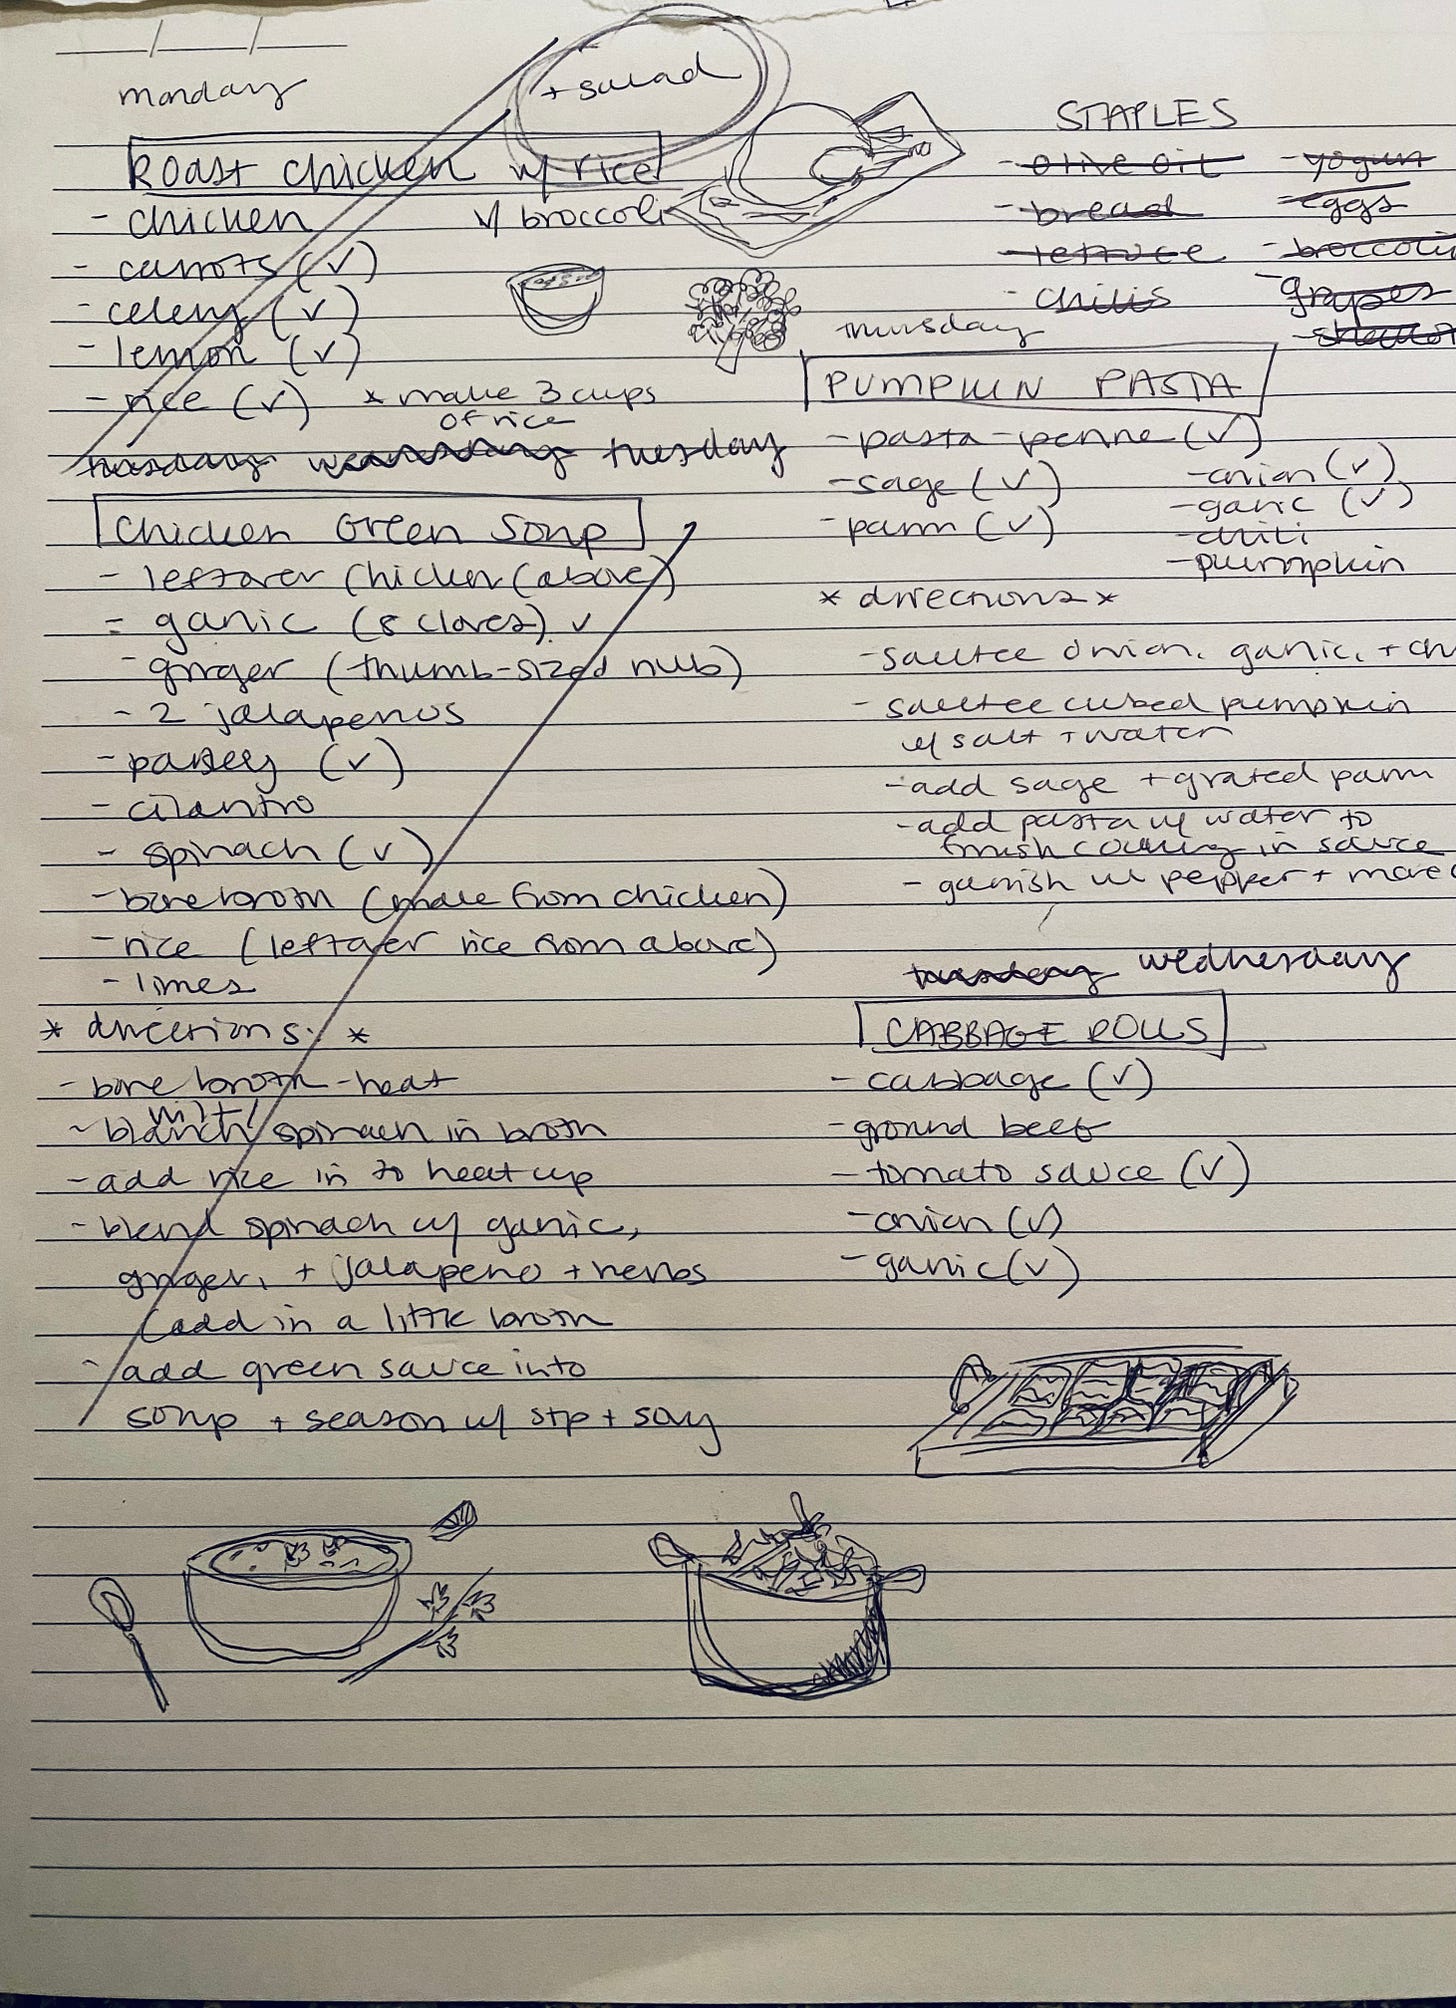 monday
+ salad
Roast chicken w/ rice
- chicken
w/ broccoli
- carrots (✓)
- celery (✓)
- lemon (✓)
- rice (✓) * make 3 cups
of rice
tuesday
Chicken Green Soup
- leftover chicken (above)
- garlic (8 cloves) ✓
- ginger (thumb-sized nub)
- 2 jalapenos
- parsley (✓)
- cilantro
- spinach (✓)
- bone broth (made from chicken)
- rice (leftover rice from above)
- limes
* directions: *
- bone broth - heat
wilt/
- blanch spinach in broth
- add rice in to heat up
- blend spinach w/ garlic,
ginger, + jalapeno + herbs
(add in a little broth
- add green sauce into
soup + season w/ s+p + soy
STAPLES
- olive oil - yogurt
- bread - eggs
- lettuce - broccoli
- chilis - grapes
thursday
PUMPKIN PASTA
- pasta - penne (✓)
- sage (✓) - onion (✓)
- parm (✓) - garlic (✓)
- chili
- pumpkin
* directions *
- sautee onion, garlic, + ch
- sautee cubed pumpkin
w/ salt + water
- add sage + grated parm
- add pasta w/ water to
finish cooking in sauce
- garnish w/ pepper + more
wednesday
CABBAGE ROLLS
- cabbage (✓)
- ground beef
- tomato sauce (✓)
- onion (✓)
- garlic (✓)